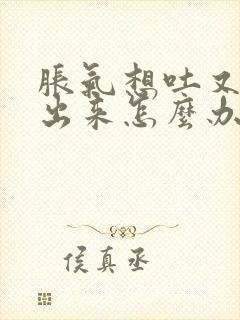 脹氣想吐又
出来怎麼办
侯真丞